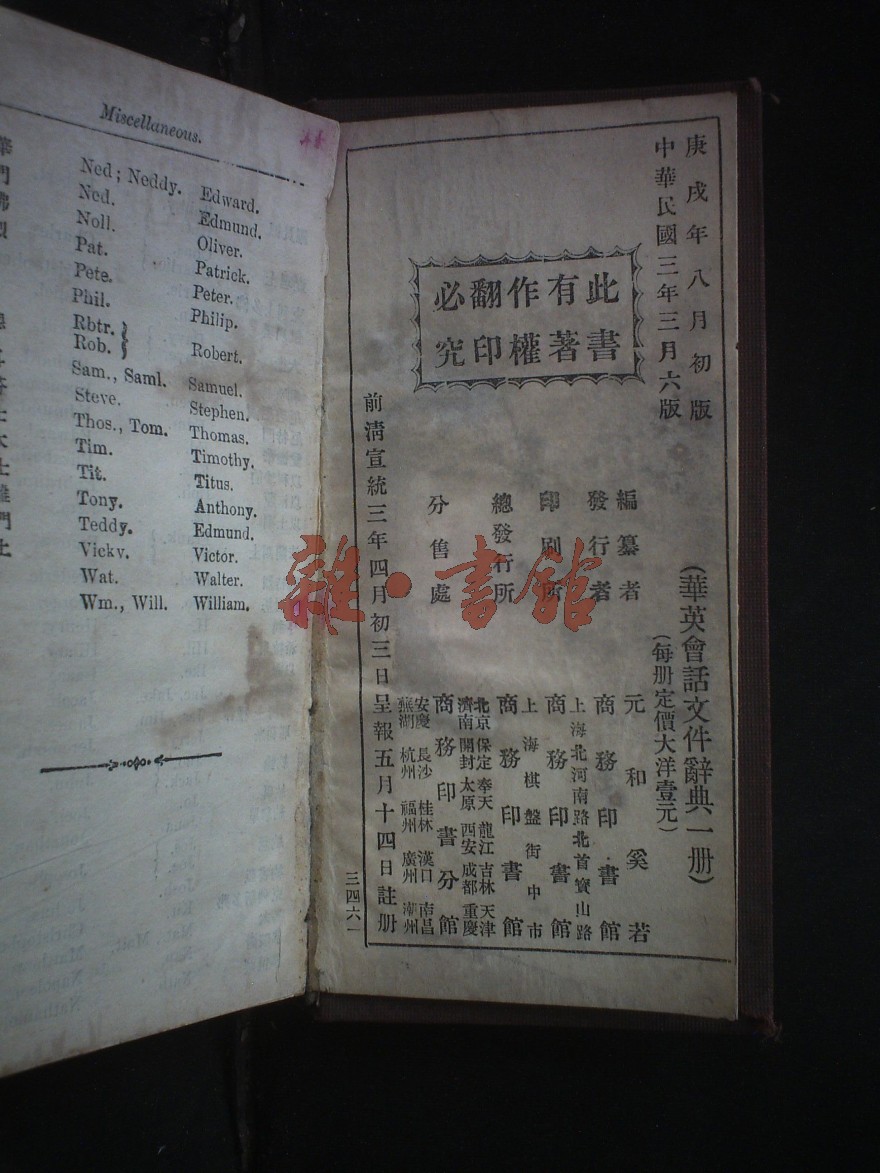 Miscellaneous.
Ned; Neddy. Edward.
Ned. Edmund.
Noll. Oliver.
Pat. Patrick.
Pete. Peter.
Phil. Philip.
Rbtr.
Rob. } Robert.
Sam., Saml. Samuel.
Steve. Stephen.
Thos., Tom. Thomas.
Tim. Timothy.
Tit. Titus.
Tony. Anthony.
Teddy. Edmund.
Vicky. Victor.
Wat. Walter.
Wm., Will. William.
庚戌年八月初版
中華民國三年三月六版
(華英會話文件辭典一册)
(每册定價大洋壹元)
此書
有著
作權
翻印
必究
編纂者 元和奚若
發行者 商務印書館
上海北河南路北首寶山路
印刷所 商務印書館
上海棋盤街中市
總發行所 商務印書館
北京 保定 奉天 龍江 吉林 天津
濟南 開封 太原 西安 成都 重慶
分售處 商務印書分館
安慶 長沙 桂林 漢口 南昌
蕪湖 杭州 福州 廣州 潮州
前清宣統三年四月初三日呈報五月十四日註册
三四六一
雜·書館